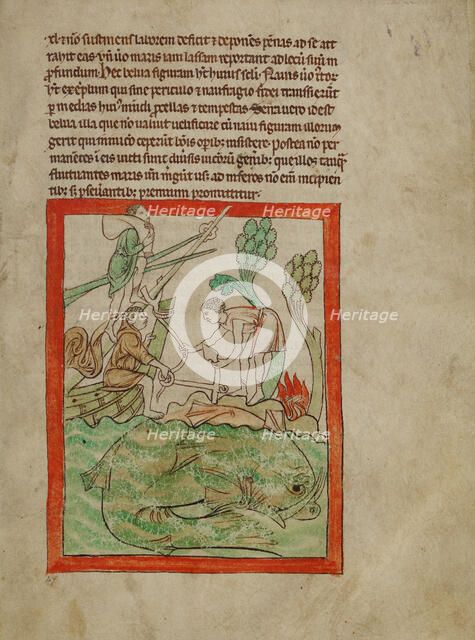 & nō sustinens laborem deficit & deponēs pēnas ad se att
rahit eas. maris iam lassam reportant ad locū suū in
profundum. Hec belua figuram ht huius scli. Nauis ū
ht exēplum qui sine periculo & naufragio fidei transierūt
per medias hui' mundi pcellas & tempestas. Serra uero id est
belua illa que nō ualuit uelificare cū naui figuram illorum
gerit qui in inicio ceperūt bōis opib; insistere. Postea nō per
manētes ī eis uicti sunt diūsis uicioru genib; que illos tāq̄
fluctuantes maris mgūt us; ad inferos nō eni incipien
tib; s; pseuātib; premium promittitur.
Heritage Heritage
Heritage
©
Heritage Heritage
Heritage Heritage